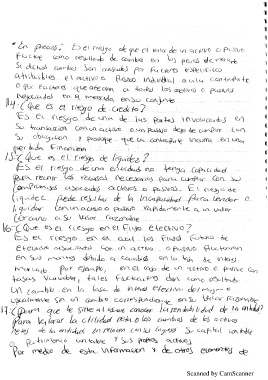 * En precios: Es el riesgo de que el valor de un activo o pasivo
fluctúe como resultado de cambios en los precios de mercado
si dichos cambios son causados por factores específicos
atribuibles al activo o pasivo individual o a la contraparte
o por factores que afectan a todos los activos o pasivos
negociados en el mercado en su conjunto
14-¿Que es el riesgo de credito?
Es el riesgo de una de las partes involucradas en
su transaccion con un activo o un pasivo deje de cumplir con
su obligacion y provoque que la contraparte incurra en una
perdida financiera
15-¿Que es el riesgo de liquidez?
Es el riesgo de una entidad no tenga capacidad
para reunir los recursos necesarios para cumplir con sus
compromisos asociados activos o pasivos. El riesgo de
liquidez puede resultar de la incapacidad para vender o
liquidar un activo o pasivo rapidamente a un valor
cercano a su valor razonable
16-¿Que es el riesgo en el flujo efectivo?
Es el riesgo en el cual los flujos futuros de
efectivo asociados con un activo o pasivo fluctuaran
en sus montos debido a cambios en la tasa de interes
mercado por ejemplo, en el caso de un activo o pasivo con
tasas variables, tales fluctuaciones dan como resultado
un cambio en la tasa de interes efectiva del mismo
igualmente sin un cambio correspondiente en su valor razonable
17-¿Para que le sirve al usuario conocer la rentabilidad de la entidad?
Para valorar la utilidad neta o los cambios de los activos
netos de la entidad en relacion con sus ingresos su capital contable
o patrimonio contable y sus propios activos
Por medio de esta informacion y de otros elementos de
Scanned by CamScanner